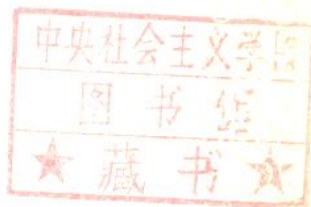 中央社会主义学院
图书馆
★ 藏 书 ★